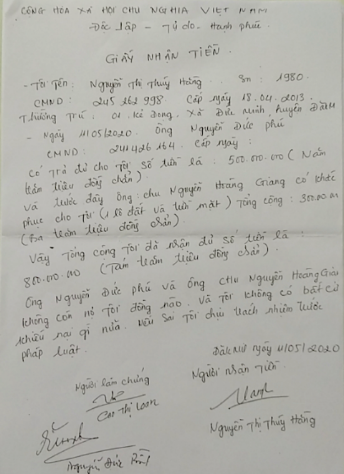 CỘNG HÒA XÃ HỘI CHỦ NGHĨA VIỆT NAM
Độc lập - Tự do - Hạnh phúc
GIẤY NHẬN TIỀN
- Tôi Tên: Nguyễn Thị Thúy Hằng. Sn: 1980
CMND: 245 262 998 Cấp ngày 18.04.2013
Thường Trú, 01. Kè Đong, Xã Đức Minh, huyện Đăk M
- Ngày 4/05/2020 Ông Nguyễn Đức phú
CMND: 241426164. Cấp ngày:
Có trả đủ cho tôi số tiền là: 500.000.000 (Năm
trăm triệu đồng chẵn)
Và trước đây ông: chu Nguyễn Hoàng Giang có khắc
phục cho tôi (1 lô đất và tiền mặt) Tổng cộng: 300.000.00
(Ba trăm triệu đồng chẵn).
Vậy Tổng cộng Tôi đã nhận đủ số tiền là:
800.000.000 (Tám trăm triệu đồng chẵn).
Ông Nguyễn Đức phú và ông chu Nguyễn Hoàng Giang
không còn nợ tôi đồng nào. Và tôi không có bất cứ
khiếu nại gì nữa. Nếu sai tôi chịu trách nhiệm trước
pháp luật.
ngày 4/05/2020
Người làm chứng
Người nhận tiền
Cao Thị Loan
Hanh
Nguyễn Thị Thúy Hằng
Nguyễn Đức